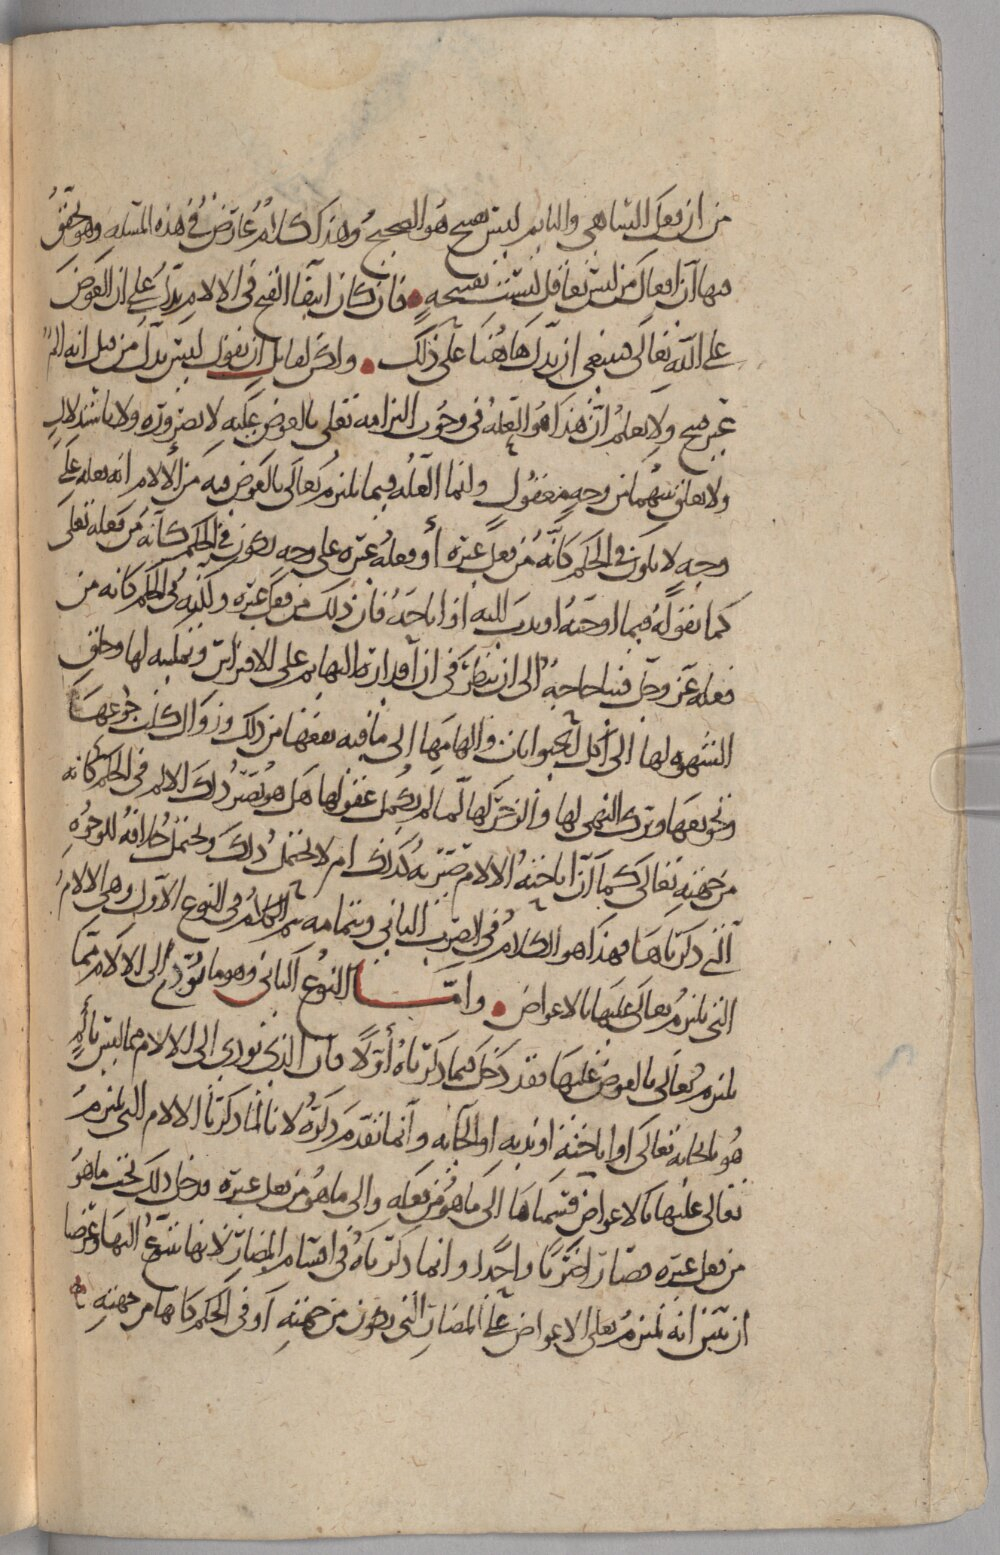 من ان فعل الساهي والنايم ليس بقبيح هو الصحيح وهذا كلام عارض في هذه المسله وهو تحقق
منها ان افعال من ليس بعاقل ليست بقبيحه فان كان انتفا القبح في الالام يدل على ان العوض
على الله تعالى فينبغي ان يدل هاهنا على ذلك ولقايل ان يقول ليس يدل من قبل انه الم
غير قبيح ولا يعلم ان هذا هو العله في وجوب التزامه تعلى بالعوض عليه لا بضروره ولا باستدلال
ولا تعلق بينهما من وجه معقول وانما العله فيما يلتزم تعالى بالعوض فيه من الالام انه يفعله على
وجه لا يكون في الحكم كانه من فعل غيره أو فعله غيره على وجه يكون في الحكم كانه من فعله تعلى
كما نقوله فيما اوجبه او ندب اليه او اباحه فان ذلك من فعل غيره ولكنه في الحكم كانه من
فعله عز وجل فبنا حاجه الى ان ننظر في ان اقداره البهايم على الافتراس وتخليته لها وخلق
الشهوه لها الى اكل الحيوانات والهامها الى ما فيه نفعها من ذلك وزوال كلب جوعها
وتخويفها وترك النهي لها والزجر لها لما لم يكمل عقولها هل هو يصير ذلك الالم في الحكم كانه
من جهته تعالى كما ان اباحته الالام تصير به كذلك ام لا يحتمل ذلك ويحتمل خلافه للوجوه
التي ذكرناها فهذا هو الكلام في الضرب الثاني وبتمامه تم الكلام في النوع الاول وهي الالام
التي يلتزم تعالى عليها بالاعواض واما النوع الثاني وهو ما يؤدي الى الالام مما
يلتزم تعالى بالعوض عليها فقد دخل فيما ذكرناه أولا فان الذي يودي الى الالام مما ليس بألم
هو بالجايه تعالى او اباحته او ندبه او الجايه وانما تقدم ذكره لانا لما ذكرنا الالام التي يلتزم
تعالى عليها بالاعواض قسمناها الى ما هو من فعله والى ما هو من فعل غيره فدخل ذلك تحت ما هو
من فعل غيره فصار الضربان واحدا وانما ذكرناه في اقسام المضار لانها تتنوع اليها وغرضنا
ان نبين انه يلتزم تعلى الاعواض على المضار التي يكون من جهته أو في الحكم كانها من جهته